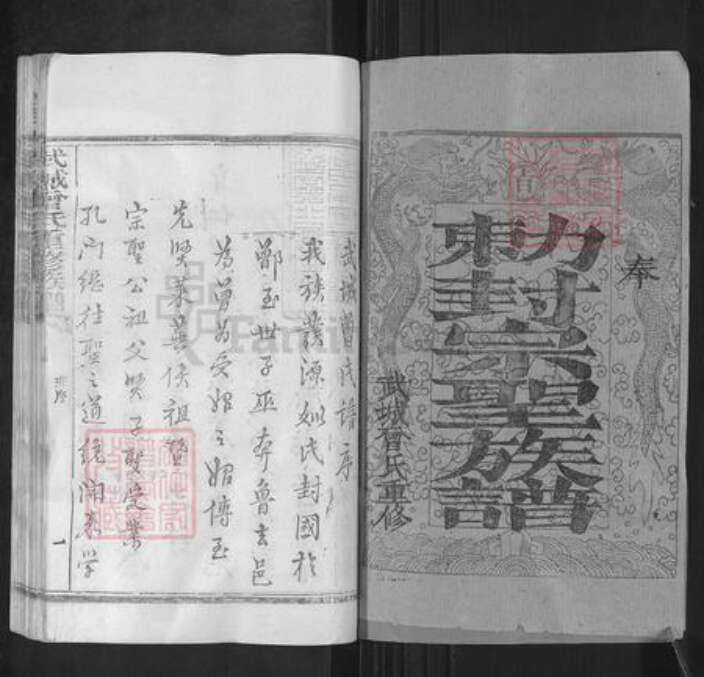 奉
勅封宗聖族譜
武城曾氏重修
武城曾氏譜序
我族發源姒氏封國於
鄫至世子巫奔魯去邑
為曾為受姓之始傳至
先賢萊蕪侯祖暨
宗聖公祖父賢子聖受業
孔門繼往聖之道統開來學
武城曾氏重修族譜
序
一